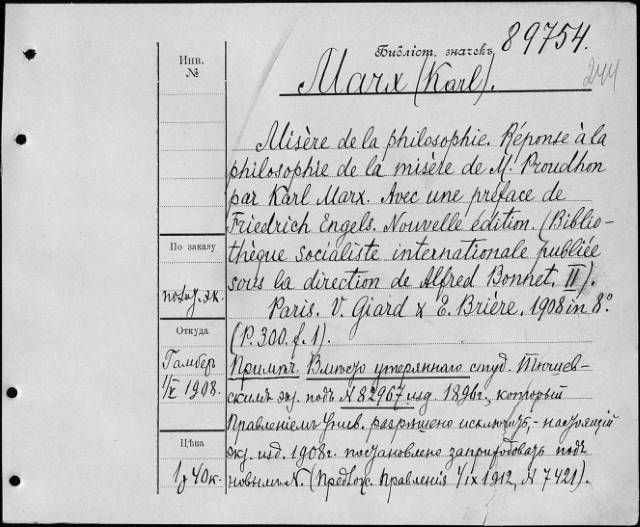 Библіот. значекъ, 89754.
244
Инв.
№
Marx (Karl).
Misère de la philosophie. Réponse à la
philosophie de la misère de M. Proudhon
par Karl Marx. Avec une préface de
Friedrich Engels. Nouvelle édition. (Biblio-
thèque socialiste internationale publiée
sous la direction de Alfred Bonnet. II).
Paris. V. Giard & E. Brière, 1908 in 8°.
(P. 300. f. 1).
По заказу
Откуда
1/X 1908.
Цѣна
1р 40к.
Примѣч. Вмѣсто утеряннаго студ. Тютчев-
скимъ экз. подъ N 82967 изд. 1896г., который
Правленіемъ Унив. разрѣшено исключить, - настоящій
экз. изд. 1908г. постановлено заприходовать подъ
новымъ N. (Предлож. Правленія 4/IX 1912, N 7421).